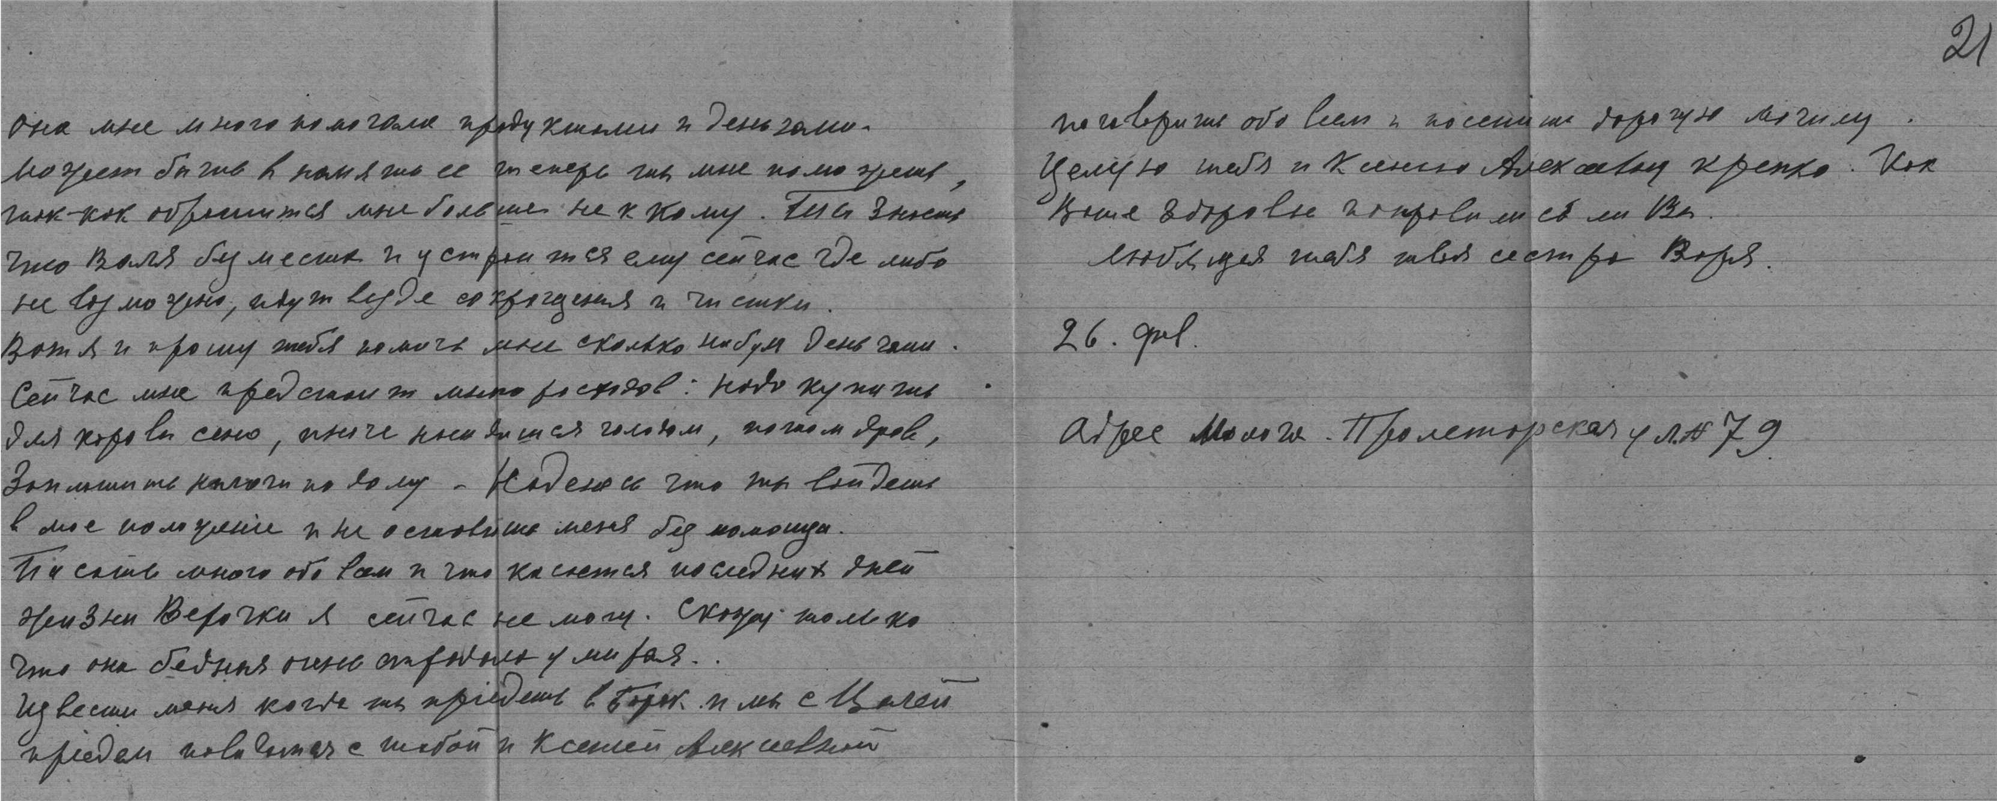 21
она мне много помогала продуктами и деньгами.
Может быть в память ее теперь ты мне поможешь,
так-как обратится мне больше не к кому. Ты знаешь
что Валя без места и устроится ему сейчас где либо
не возможно, идут везде сокращения и чистки.
Вот я и прошу тебя помочь мне сколько нибудь деньгами.
Сейчас мне предстоит много расходов: надо купить
для коровы сено, иначе насидимся голодом, потом дров,
Заплатить налоги по дому - Надеюсь что ты войдешь
в мое положение и не оставишь меня без помощи.
Писать много обо всем и что касается последних дней
жизни Верочки я сейчас не могу. Скажу только
что она бедная очень страдала умирая..
Извести меня когда ты приедешь в Борок и мы с Валей
приедем повидаться с тобой и Ксенией Алексеевной
поговорить обо всем и посетить дорогую могилу.
Целую тебя и Ксению Алексеевну крепко. Как
Ваше здоровье поправились ли Вы.
Любящая тебя твоя сестра Варя.
26. фев.
Адрес Молога. Пролетарская ул № 79